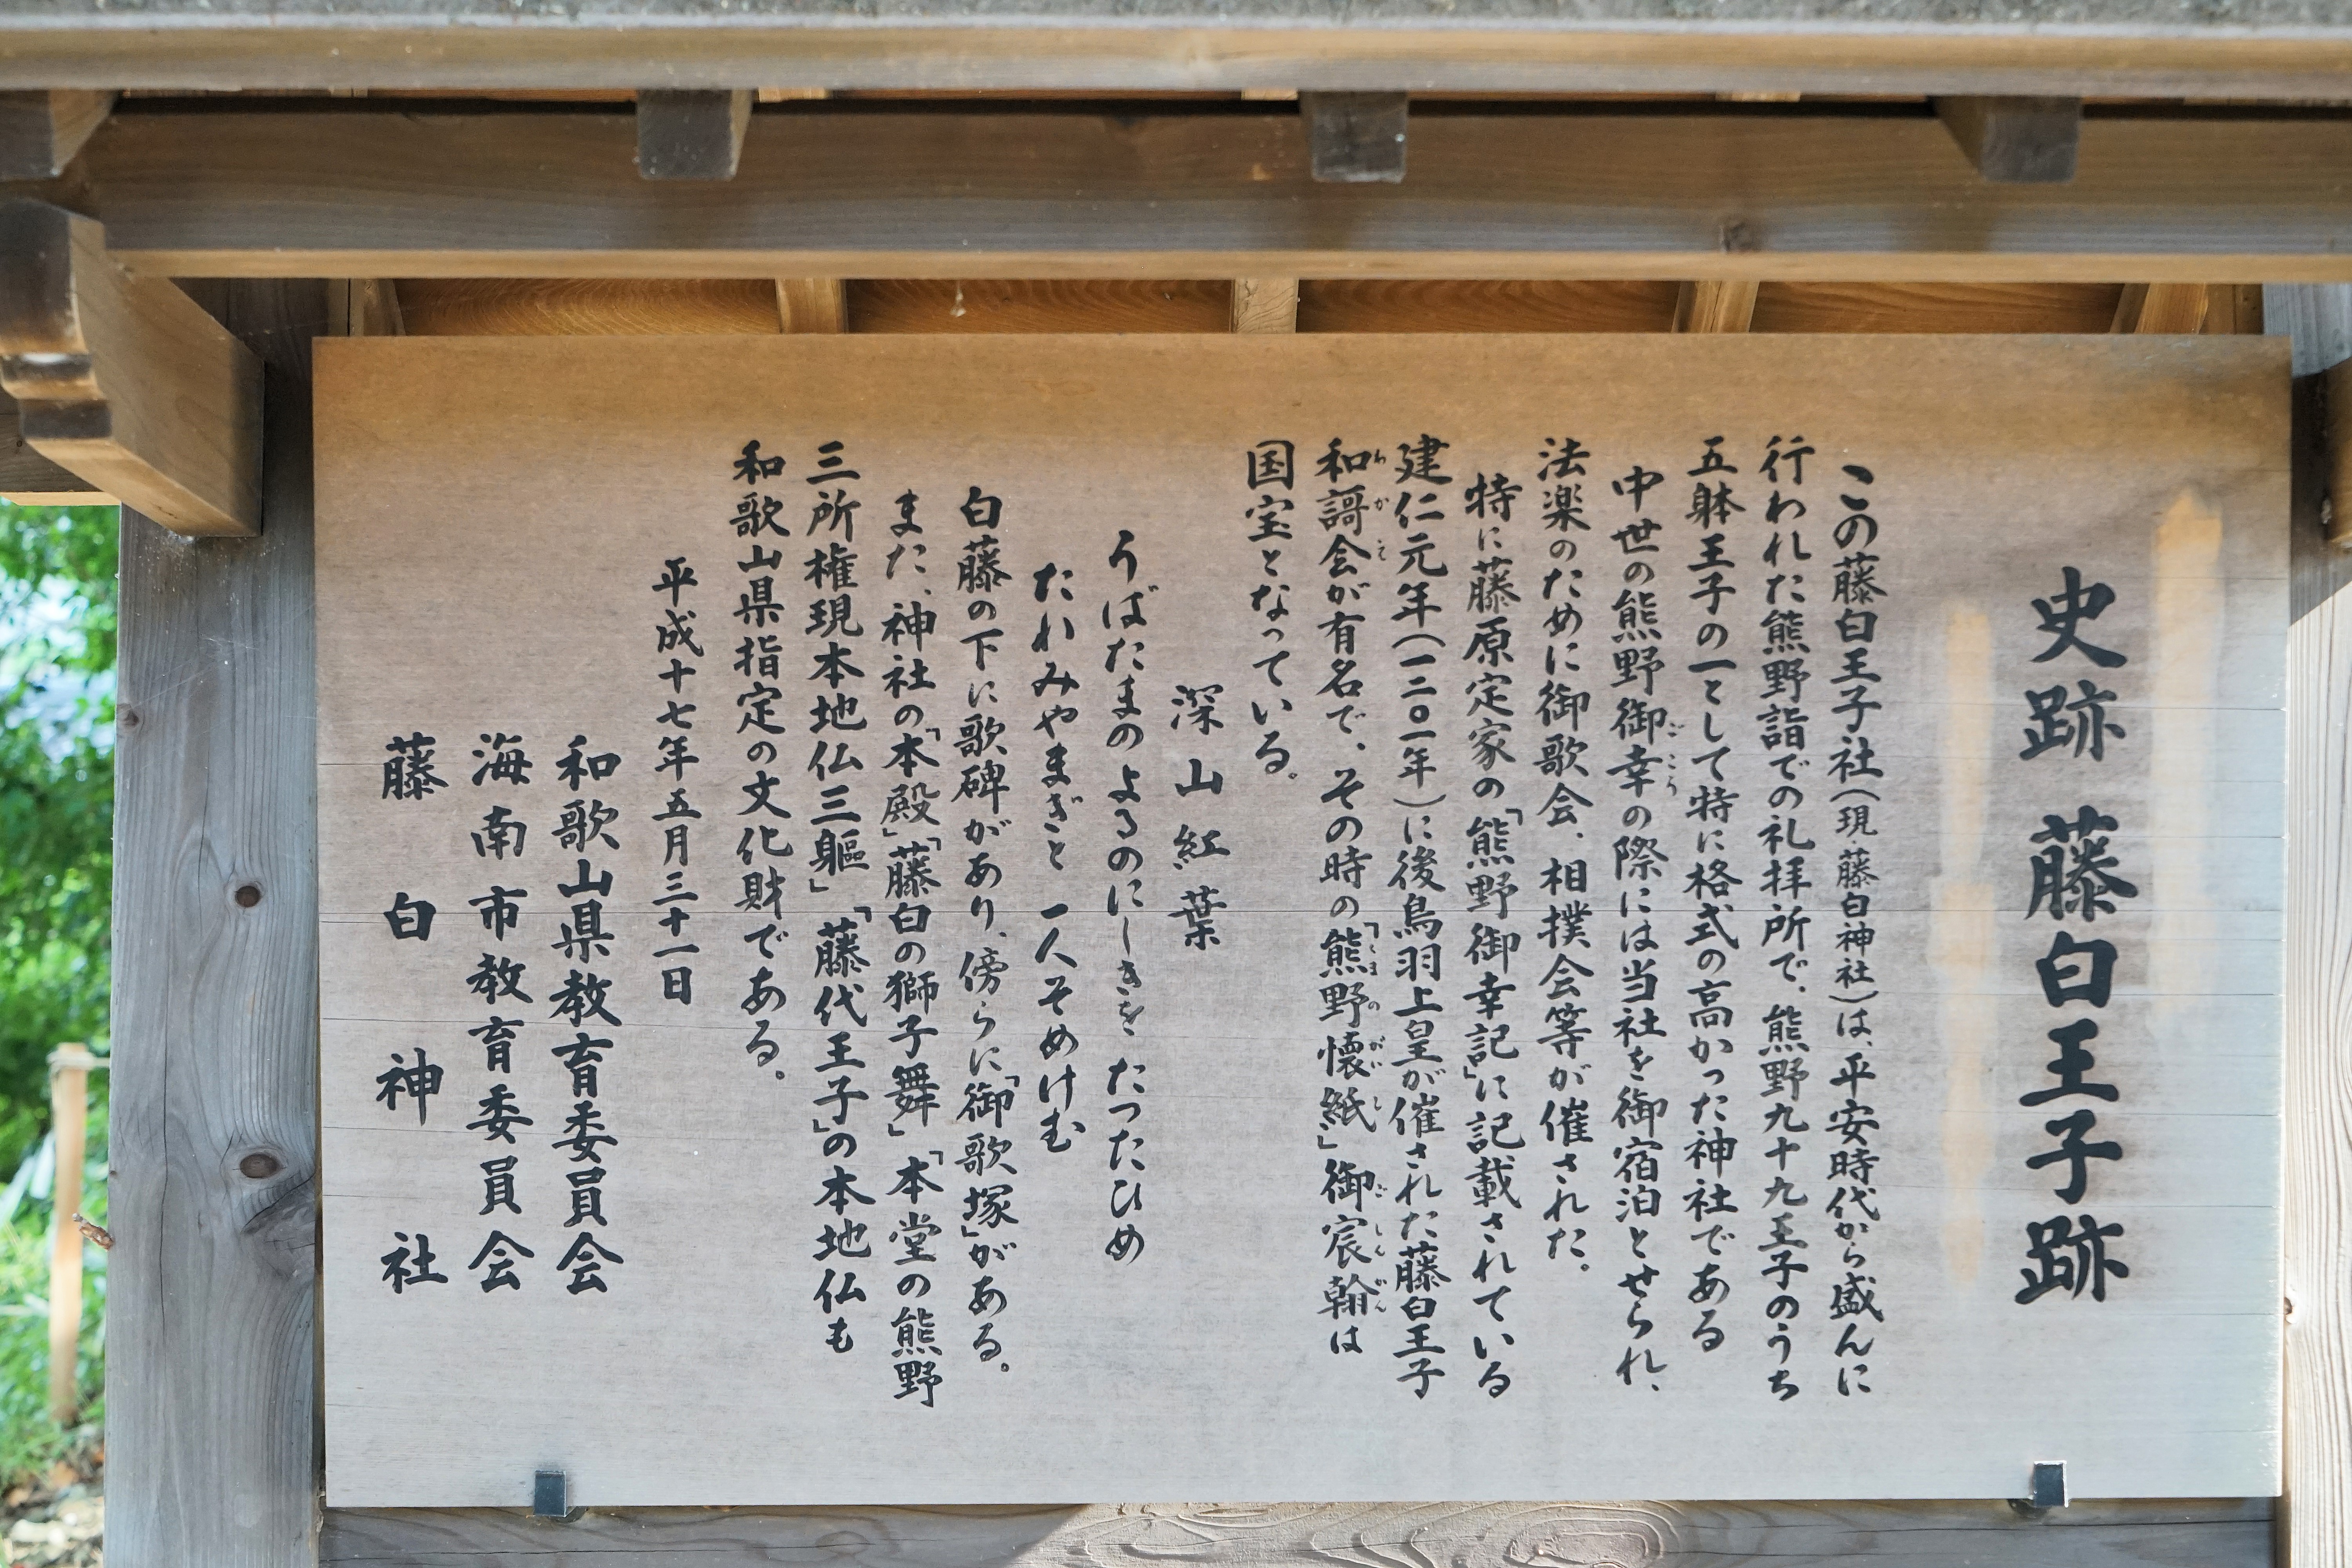 史跡 藤白王子跡
この藤白王子社(現・藤白神社)は、平安時代から盛んに
行われた熊野詣での礼拝所で、熊野九十九王子のうち
五躰王子の一として特に格式の高かった神社である
中世の熊野御幸の際には当社を御宿泊とせられ、
法楽のために御歌会、相撲会等が催された。
特に藤原定家の「熊野御幸記」に記載されている
建仁元年(一二〇一年)に後鳥羽上皇が催された藤白王子
和謌会が有名で、その時の「熊野懐紙」御宸翰は
国宝となっている。
深山紅葉
うばたまのよるのにしきを たつたひめ
たれみやまぎと 一人そめけむ
白藤の下に歌碑があり、傍らに「御歌塚」がある。
また、神社の「本殿」「藤白の獅子舞」「本堂の熊野
三所権現本地仏三軀」「藤代王子」の本地仏も
和歌山県指定の文化財である。
平成十七年五月三十一日
和歌山県教育委員会
海南市教育委員会
藤白神社